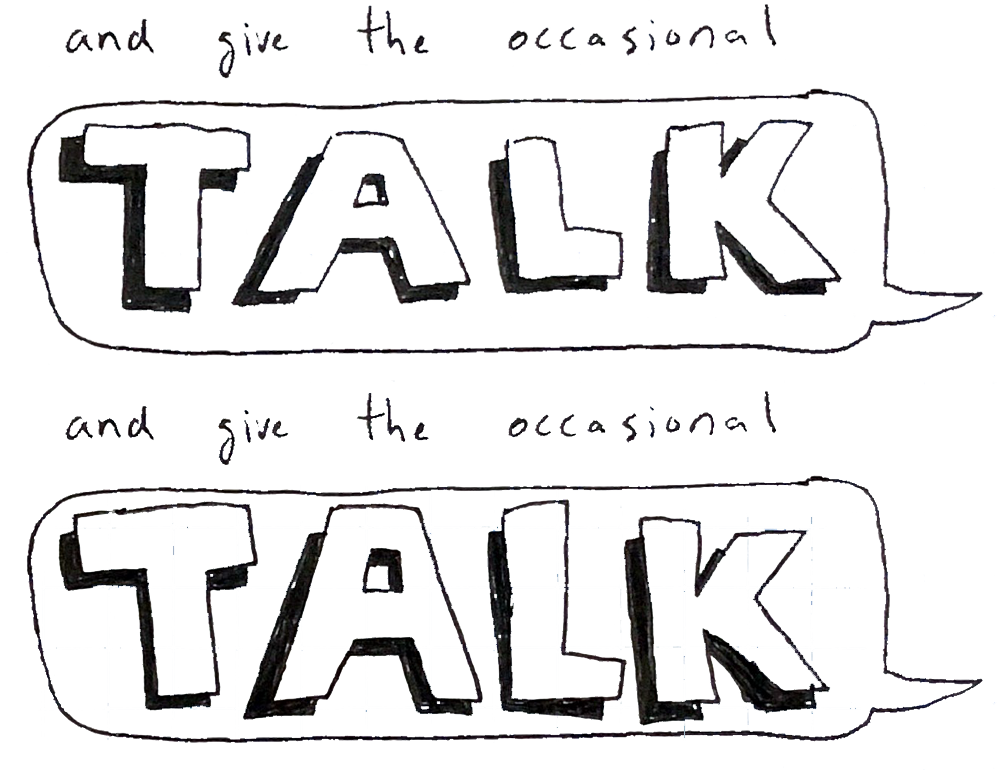 and give the occasional
TALK
and give the occasional
TALK